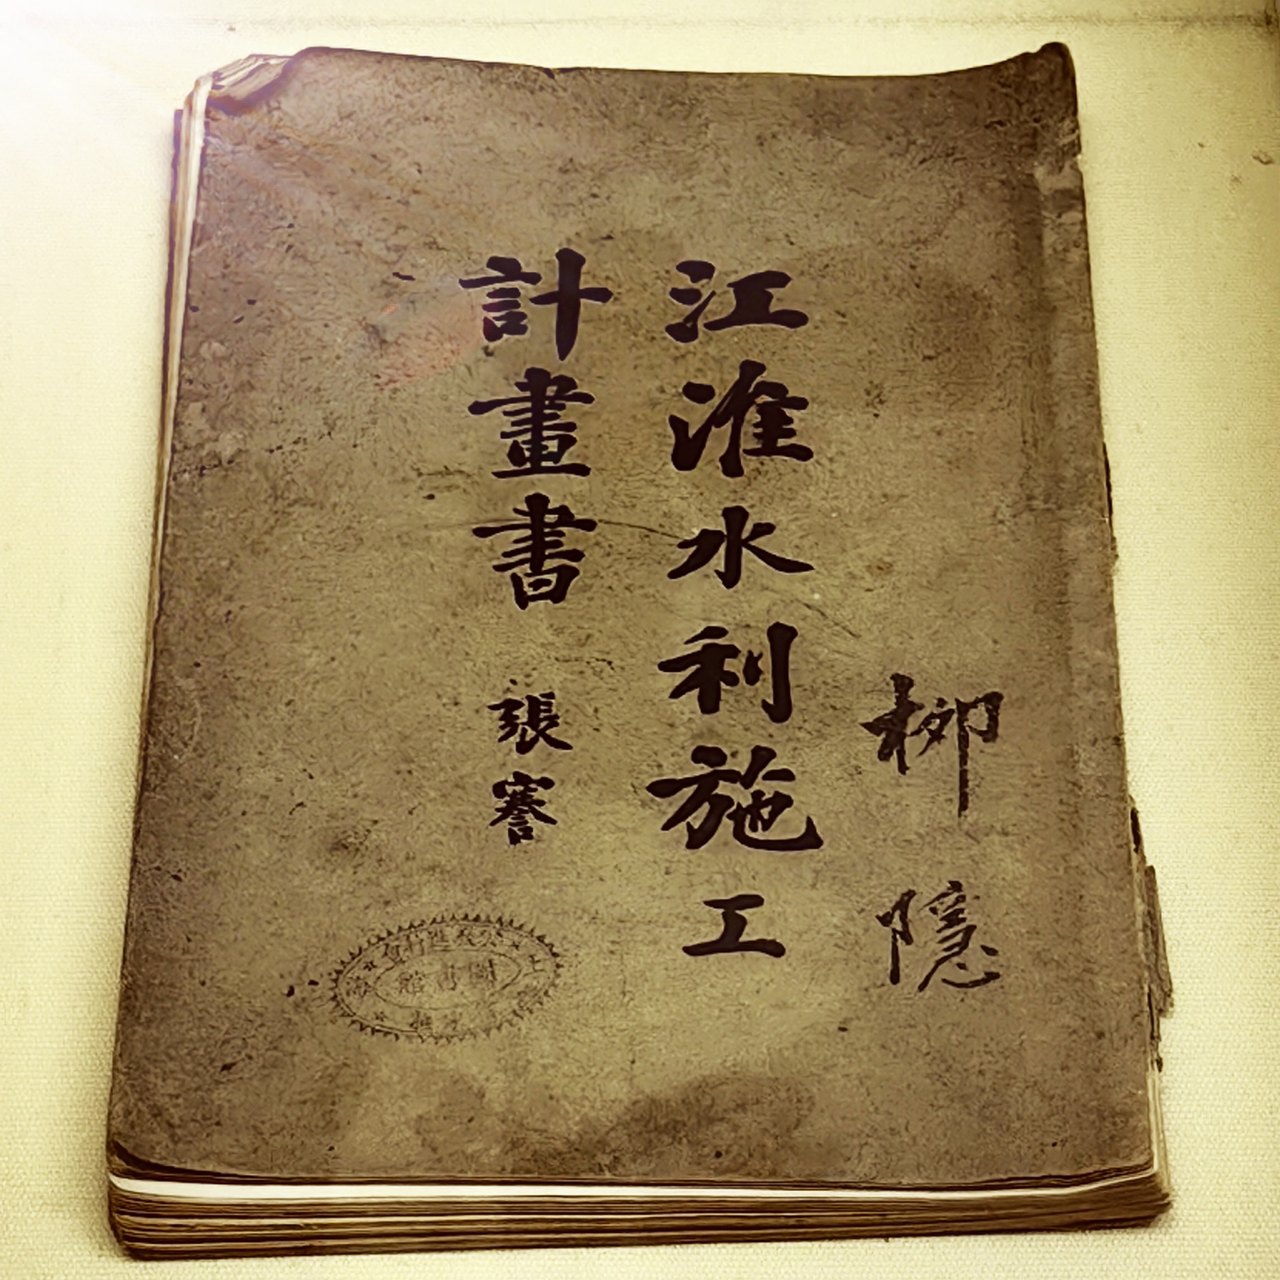 柳隱
江淮水利施工
計畫書
張謇
圖書館